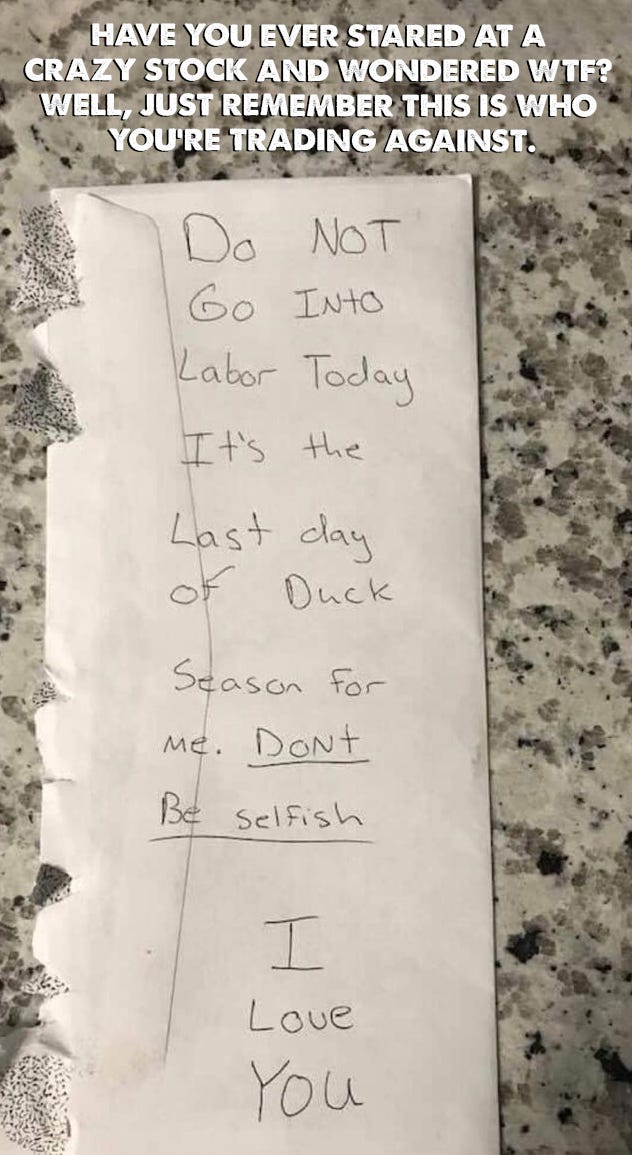 HAVE YOU EVER STARED AT A
CRAZY STOCK AND WONDERED WTF?
WELL, JUST REMEMBER THIS IS WHO
YOU'RE TRADING AGAINST.
Do NOT
Go INtO
Labor Today
It's the
Last day
of Duck
Season for
me. DONt
Be selfish
I
Love
YOU